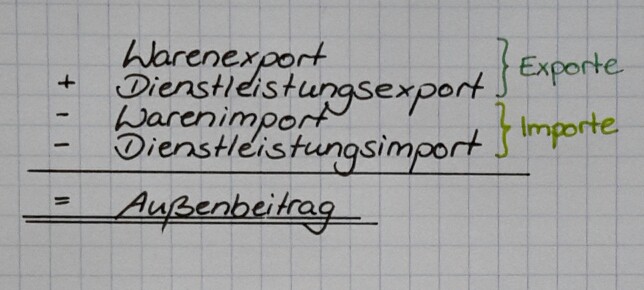 Warenexport
+ Dienstleistungsexport } Exporte
- Warenimport
- Dienstleistungsimport } Importe
= Außenbeitrag